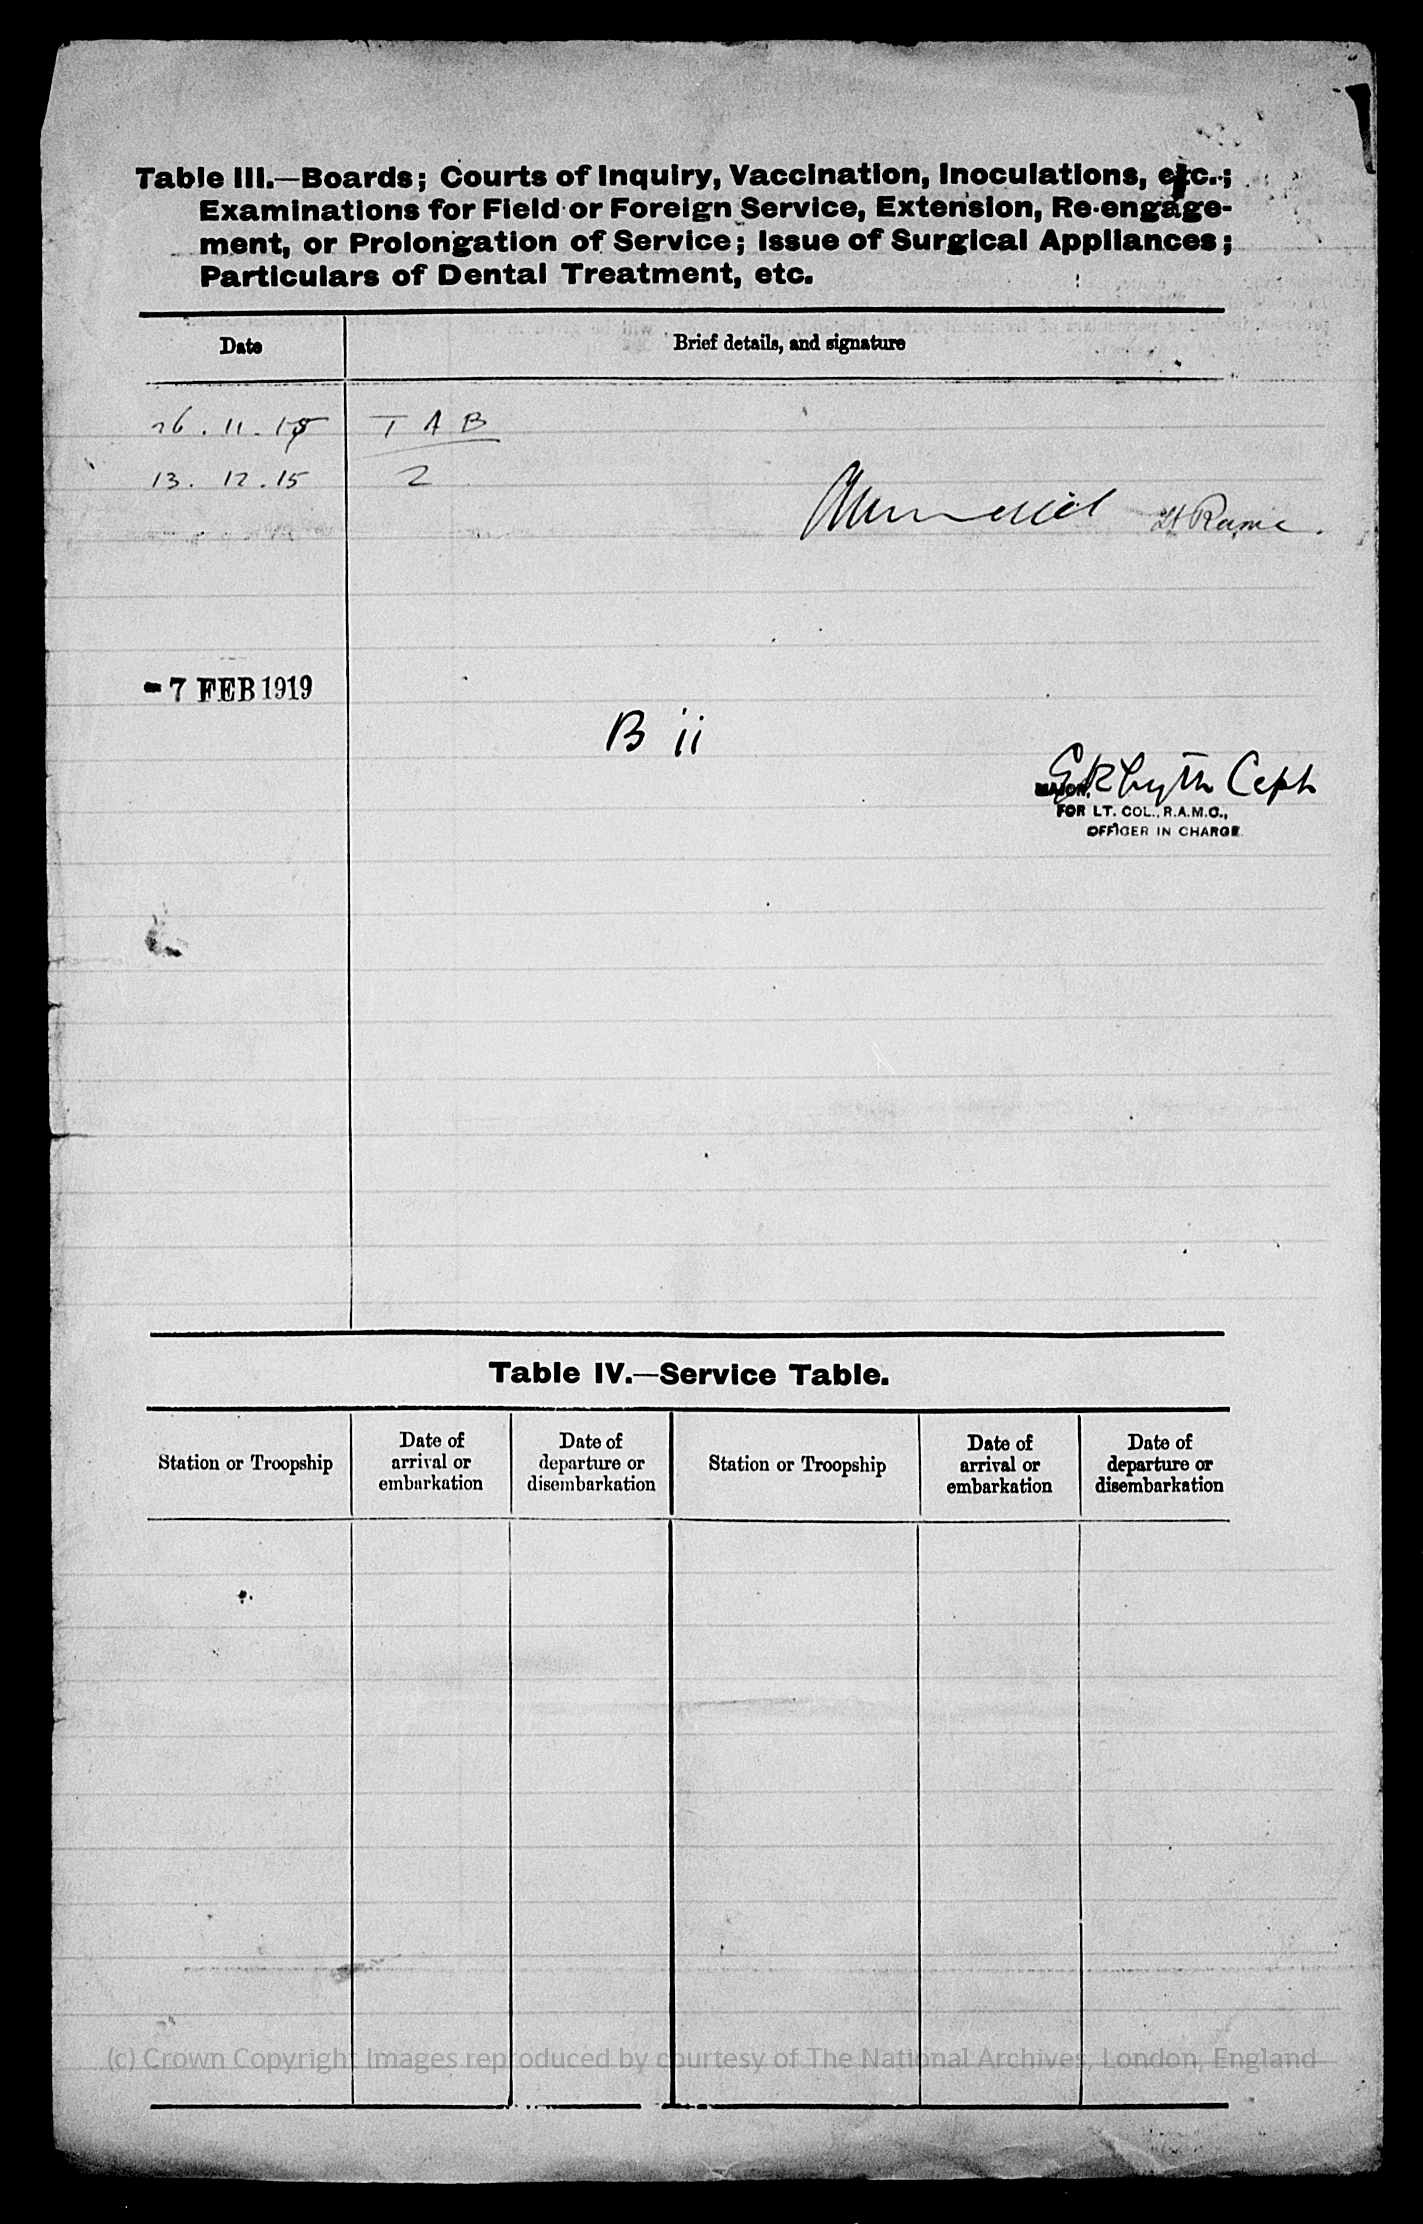 Table III.—Boards; Courts of Inquiry, Vaccination, Inoculations, etc.;
Examinations for Field or Foreign Service, Extension, Re-engage-
ment, or Prolongation of Service; Issue of Surgical Appliances;
Particulars of Dental Treatment, etc.
Date Brief details, and signature
26.11.15 T A B
13. 12.15 2
Lt Ramc.
-7 FEB 1919
B ii
Capt
MAJOR,
FOR LT. COL., R.A.M.C.,
OFFICER IN CHARGE
Table IV.—Service Table.
Station or Troopship Date of arrival or embarkation Date of departure or disembarkation Station or Troopship Date of arrival or embarkation Date of departure or disembarkation
(c) Crown Copyright Images reproduced by courtesy of The National Archives, London, England